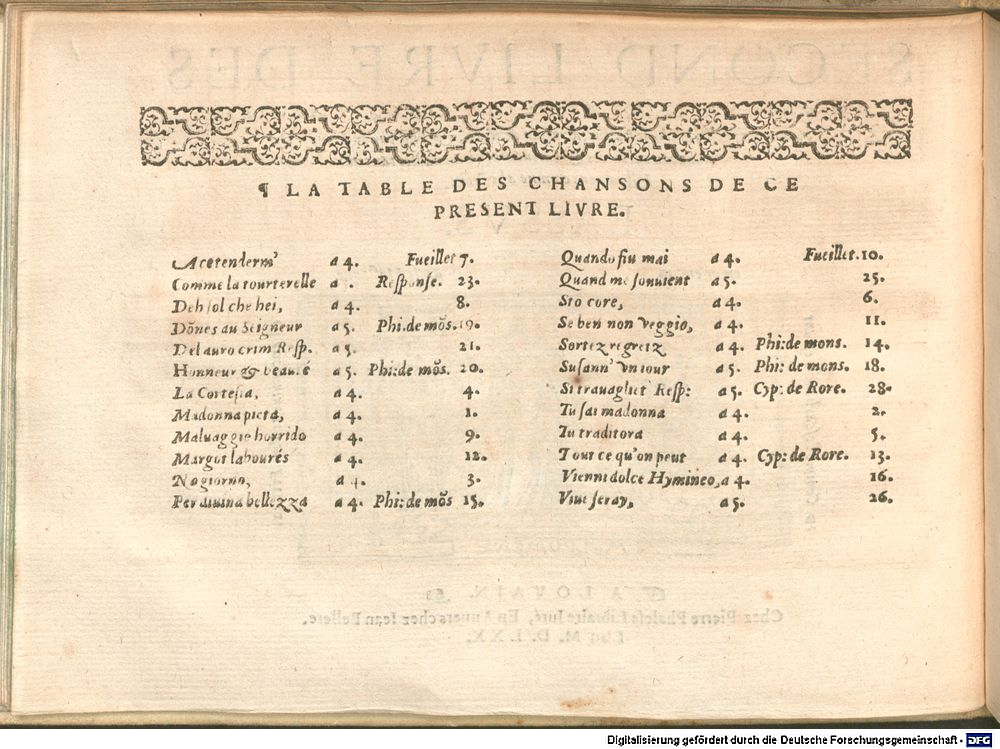 ¶ LA TABLE DES CHANSONS DE CE
PRESENT LIVRE.
a 4. Fueillet 7.
Comme la tourterelle a . Response. 23.
Deh sol che hei, a 4. 8.
Dões au Seigneur a 5. Phi. de mõs. 19.
Del auro crim Resp. a 5. 21.
Honneur & beauté a 5. Phi: de mõs. 20.
La Cortesia, a 4. 4.
Madonna pieta, a 4. 1.
Maluaggio horrido a 4. 9.
Margot labourés a 4. 12.
No giorno, a 4. 3.
Per diuina bellezza a 4. Phi: de mõs 15.
Quando fiu mai a 4. Fueillet. 10.
Quand me souuient a 5. 25.
Sto core, a 4. 6.
Se ben non veggio, a 4. 11.
Sortez regretz a 4. Phi: de mons. 14.
Susann' vn iour a 5. Phi: de mons. 18.
Si trauagliet Resp: a 5. Cyp: de Rore. 28.
Tu sai madonna a 4. 2.
Tu traditora a 4. 5.
Tout ce qu'on peut a 4. Cyp: de Rore. 13.
Vienni dolce Hymineo, a 4. 16.
Viue seray, a 5. 26.
Digitalisierung gefördert durch die Deutsche Forschungsgemeinschaft - DFG